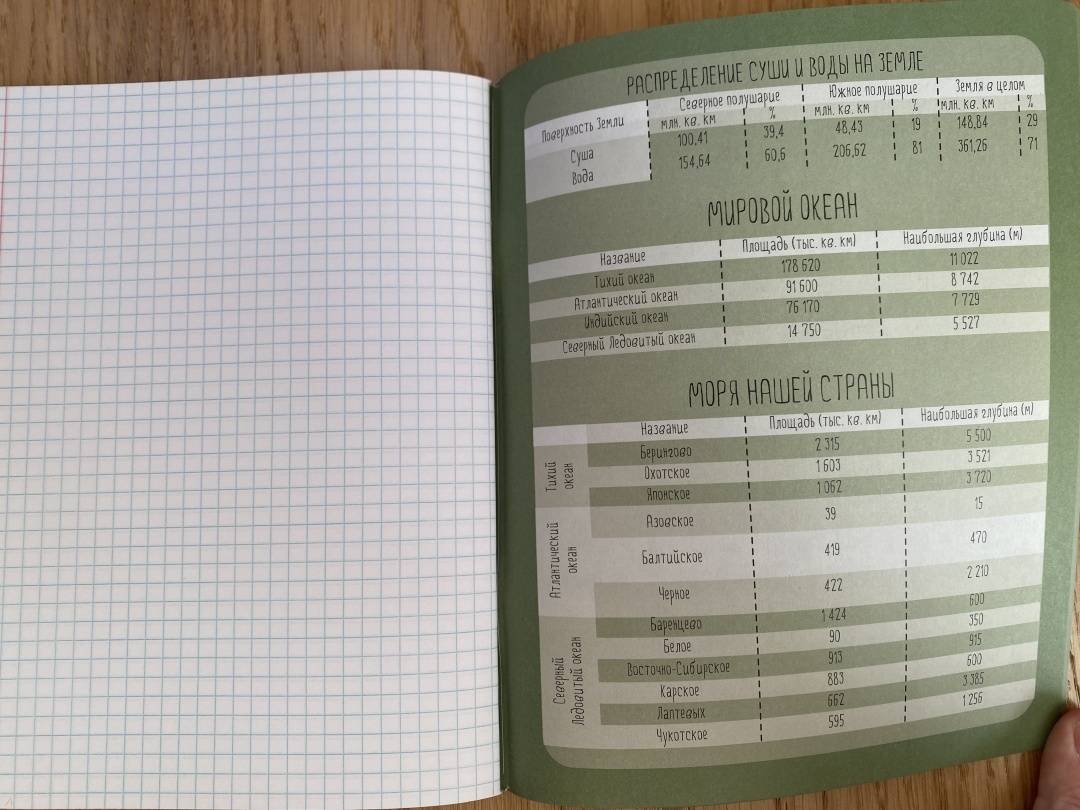 РАСПРЕДЕЛЕНИЕ СУШИ И ВОДЫ НА ЗЕМЛЕ
Поверхность Земли Северное полушарие Южное полушарие Земля в целом
млн. кв. км % млн. кв. км % млн. кв. км %
Суша 100,41 39,4 48,43 19 148,84 29
Вода 154,64 60,6 206,62 81 361,26 71
МИРОВОЙ ОКЕАН
Название Площадь (тыс. кв. км) Наибольшая глубина (м)
Тихий океан 178 620 11 022
Атлантический океан 91 600 8 742
Индийский океан 76 170 7 729
Северный Ледовитый океан 14 750 5 527
МОРЯ НАШЕЙ СТРАНЫ
Название Площадь (тыс. кв. км) Наибольшая глубина (м)
Тихий
океан
Берингово 2 315 5 500
Охотское 1 603 3 521
Японское 1 062 3 720
Атлантический
океан
Азовское 39 15
Балтийское 419 470
Черное 422 2 210
Северный
Ледовитый океан
Баренцево 1 424 600
Белое 90 350
Восточно-Сибирское 913 915
Карское 883 600
Лаптевых 662 3 385
Чукотское 595 1 256